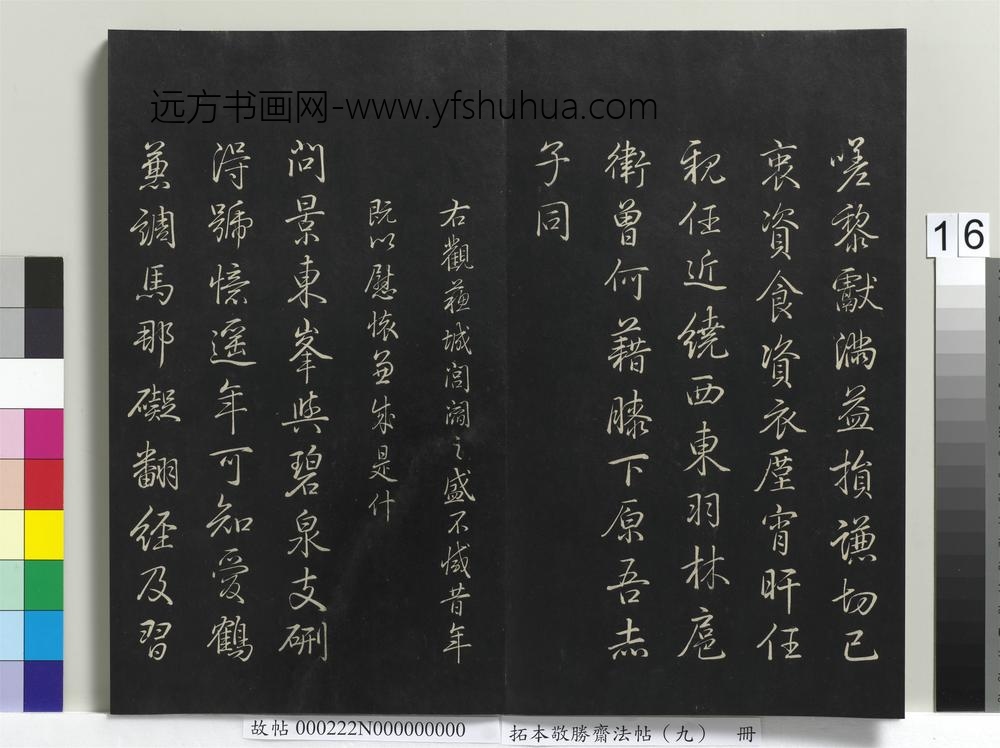 远方书画网-www.yfshuhua.com
嗟黎獻滿益損謙切已
衷資食資衣廑宵旰任
親任近繞西東羽林扈
衛曾何藉膝下原吾赤
子同
右觀蘇城閭閻之盛不減昔年
既以慰懷並成是什
問景東峯與碧泉支硎
得號憶遥年可知愛鶴
兼調馬那礙翻經及習
16
故帖000222N000000000
拓本敬勝齋法帖（九） 冊